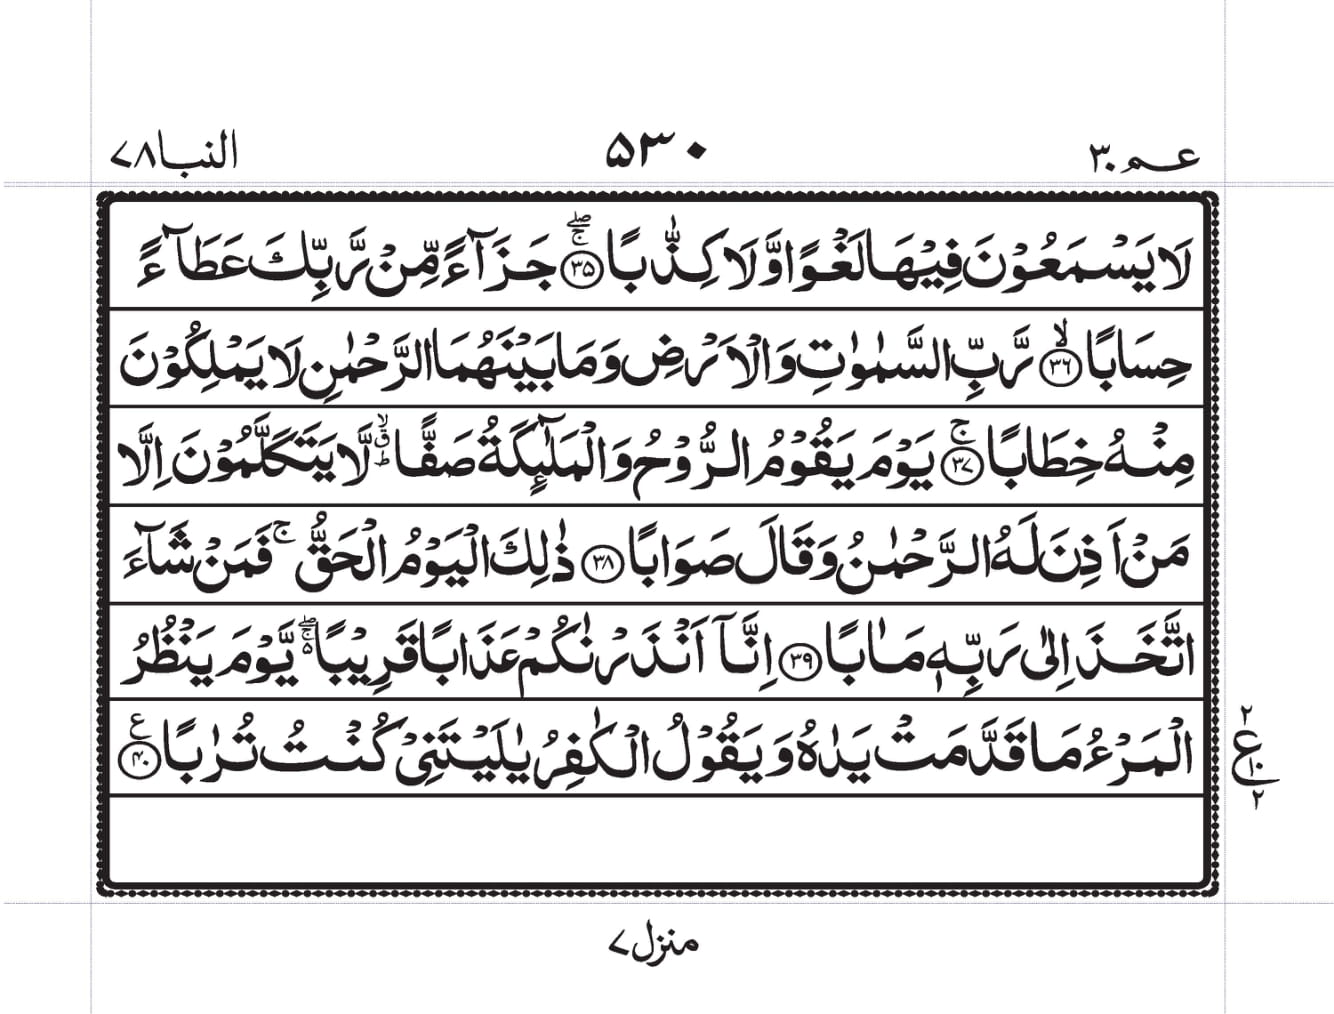 عـم ٣٠
٥٣٠
النبا ٧٨
لَا يَسۡمَعُوۡنَ فِيۡهَا لَغۡوًا وَّلَا كِذّٰبًا ۚۖ‏ ﴿۳۵﴾ جَزَآءً مِّنۡ رَّبِّكَ عَطَآءً
حِسَابًا ۙ‏ ﴿۳۶﴾ رَّبِّ السَّمٰوٰتِ وَالۡاَرۡضِ وَمَا بَيۡنَهُمَا الرَّحۡمٰنِ لَا يَمۡلِكُوۡنَ
مِنۡهُ خِطَابًا ۚ‏ ﴿۳۷﴾ يَوۡمَ يَقُوۡمُ الرُّوۡحُ وَالۡمَلٰٓٮِٕكَةُ صَفًّا ؕۙ ق لَّا يَتَكَلَّمُوۡنَ اِلَّا
مَنۡ اَذِنَ لَهُ الرَّحۡمٰنُ وَقَالَ صَوَابًا‏ ﴿۳۸﴾ ذٰلِكَ الۡيَوۡمُ الۡحَقُّ ۚ فَمَنۡ شَآءَ
اتَّخَذَ اِلٰى رَبِّهٖ مَاٰبًا‏ ﴿۳۹﴾ اِنَّاۤ اَنۡذَرۡنٰكُمۡ عَذَابًا قَرِيۡبًا ۖۚ ۵ يَّوۡمَ يَنۡظُرُ
الۡمَرۡءُ مَا قَدَّمَتۡ يَدٰهُ وَيَقُوۡلُ الۡكٰفِرُ يٰلَيۡتَنِىۡ كُنۡتُ تُرٰبًا ع ﴿۴۰﴾
٢
ع
١٠
٢
منزل ٧